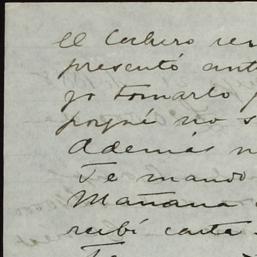 el cochero
presentó ant
yo tomarlo p
porqué no s
Además n
Te mando
Mañana
recibí carta
Te